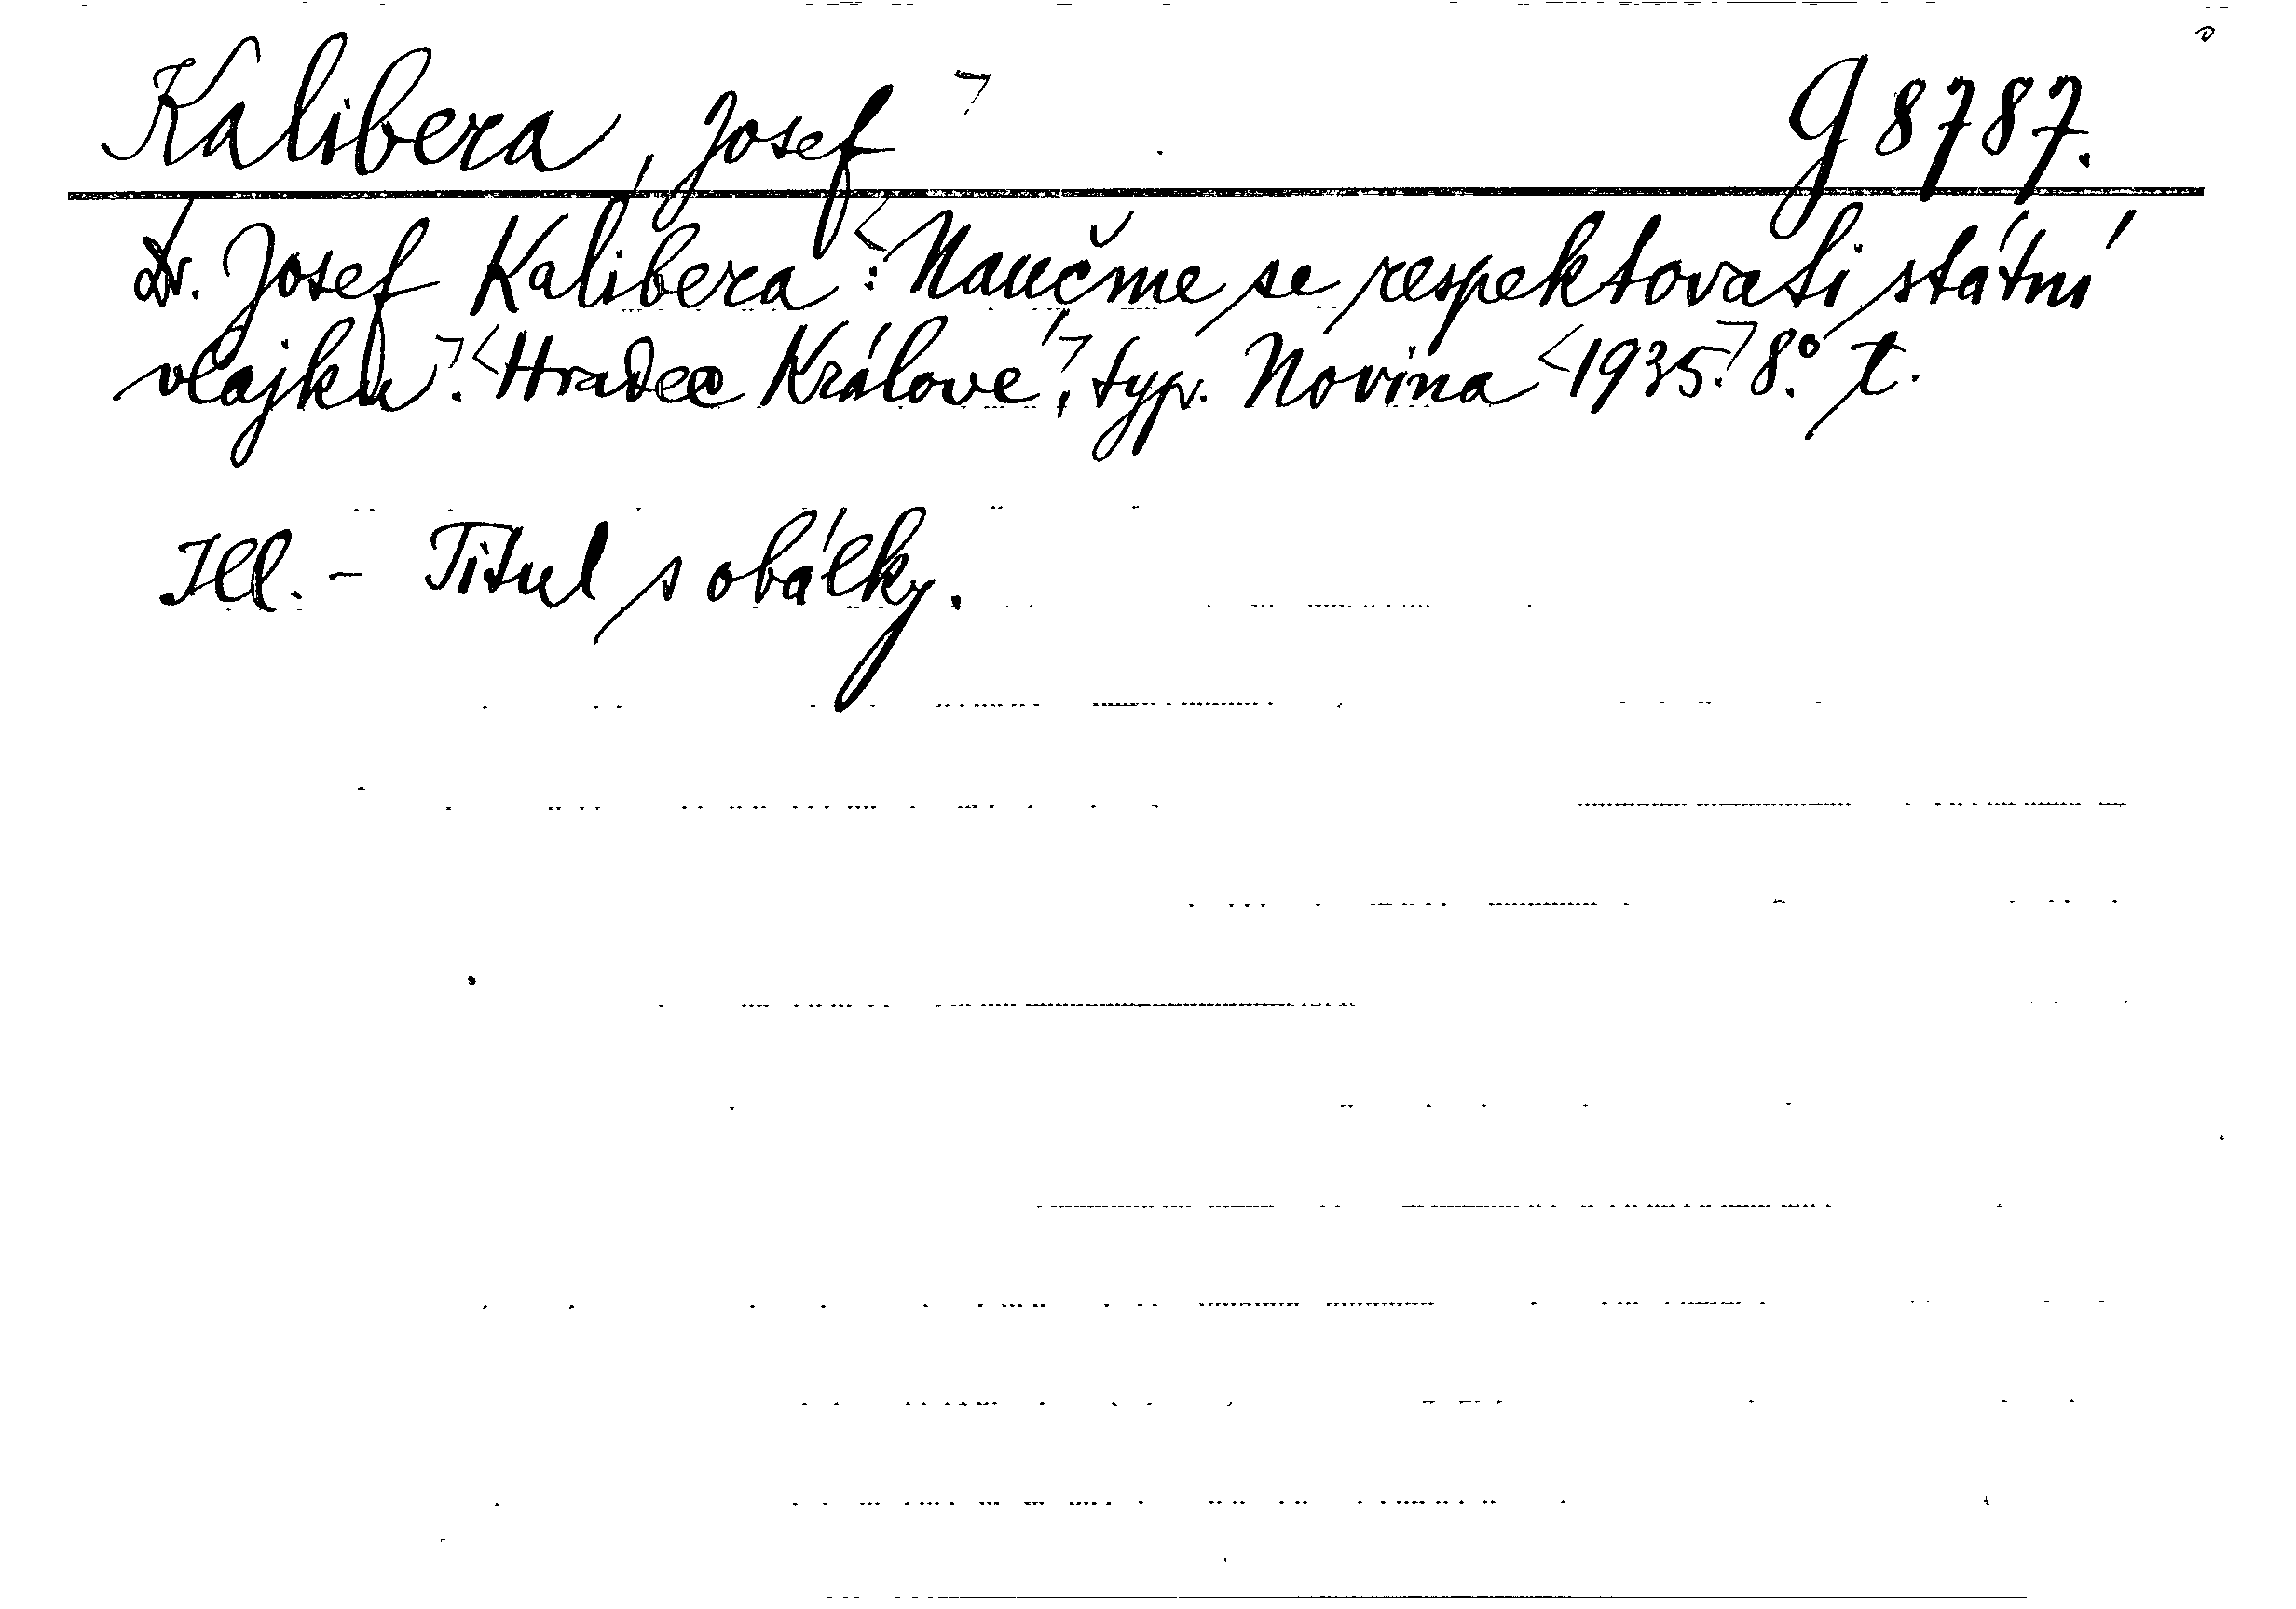 Kalibera, Josef ⌝ G 8787.
Dr. Josef Kalibera: <Naučme se respektovati státní
vlajku⌝. <Hradec Králové⌝, typ. Novina <1935.⌝ 8.° t.
Ill. - Titul s obálky.